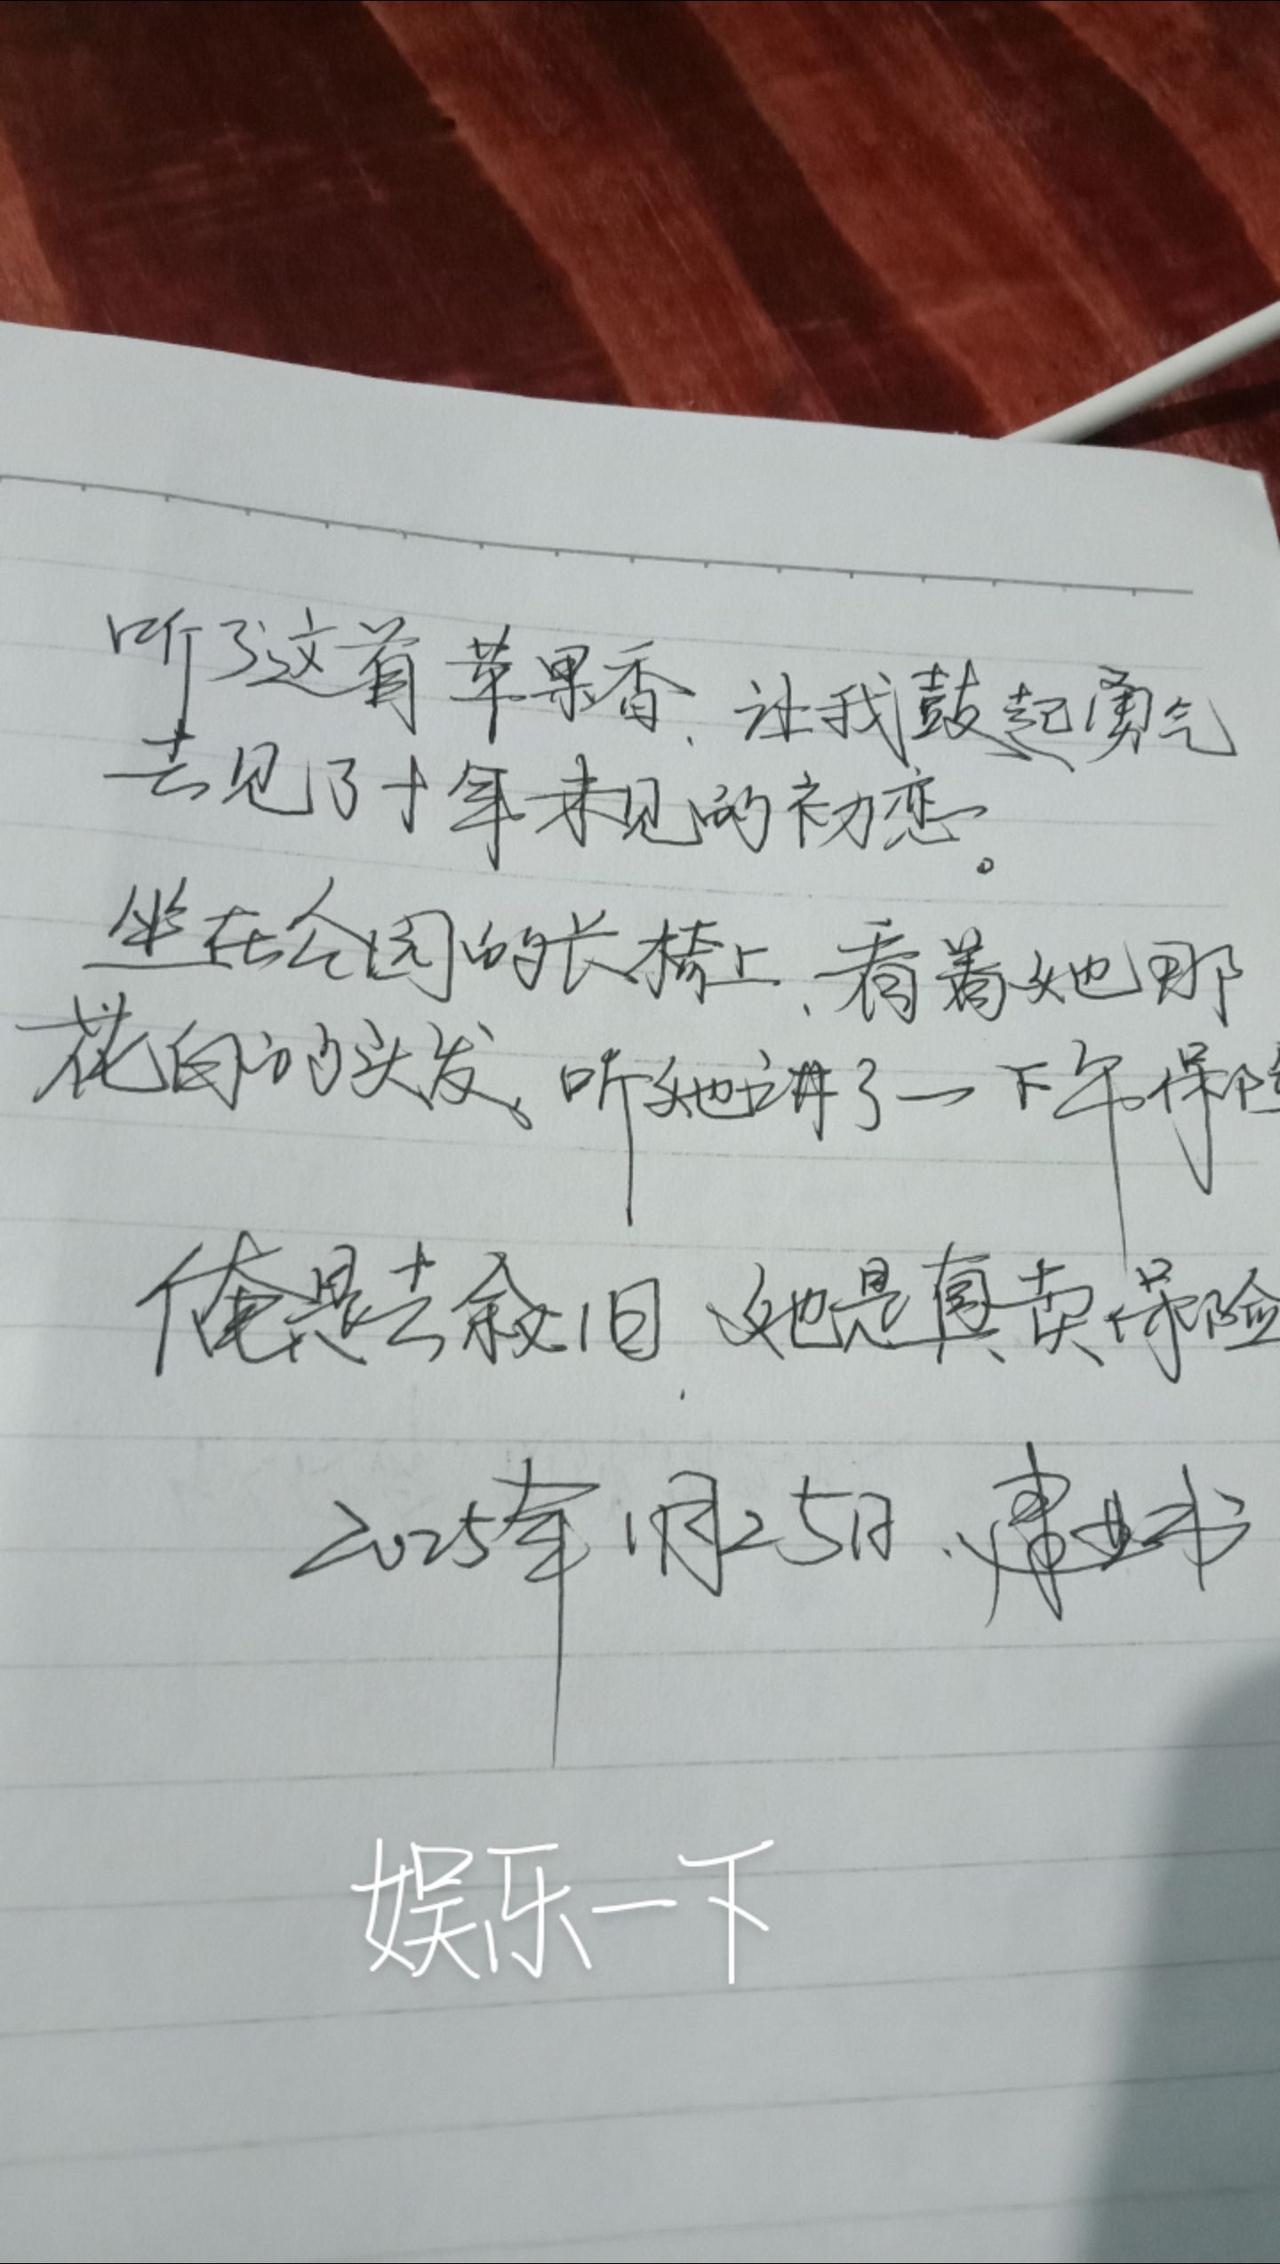 听了这首苹果香、让我鼓起勇气
去见了十年未见的初恋。
坐在公园的长椅上、看着她那
花白的头发、听她讲了一下午保险
俺是去叙旧、她是真卖保险
2025年1月25日、
娱乐一下